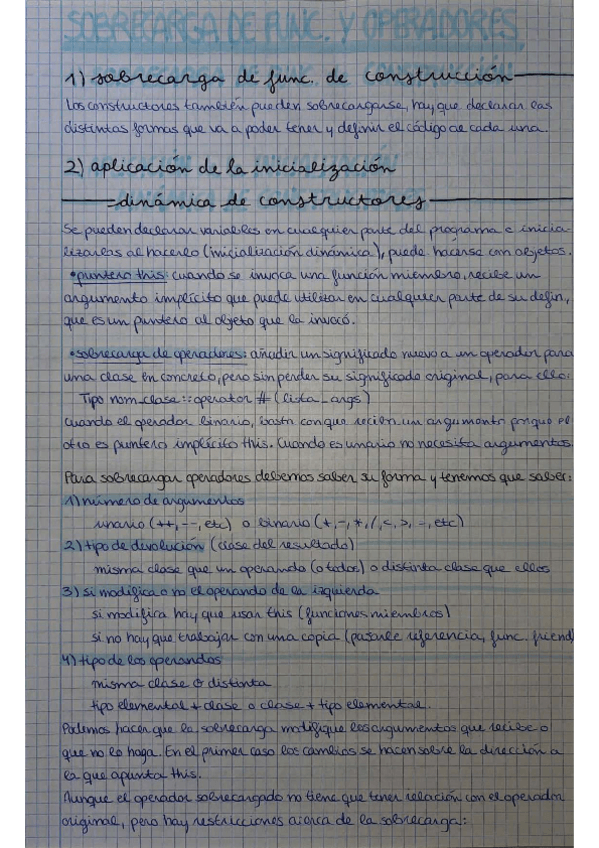 SOBRECARGA DE FUNC. Y OPERADORES
1) sobrecarga de func. de construcción
Los constructores también pueden sobrecargarse, hay que declarar las
distintas formas que va a poder tener y definir el código de cada una.
2) aplicación de la inicialización
dinámica de constructores
Se pueden declarar variables en cualquier parte del programa e inicia-
lizarlas al hacerlo (inicialización dinámica), puede hacerse con objetos.
•puntero this: cuando se invoca una función miembro, recibe un
argumento implícito que puede utilizar en cualquier parte de su defin,
que es un puntero al objeto que la invocó.
•sobrecarga de operadores: añadir un significado nuevo a un operador para
una clase en concreto, pero sin perder su significado original, para ello:
Tipo nom_clase::operator # (lista_args)
cuando el operador binario, basta con que reciba un argumento porque el
otro es puntero implícito this. Cuando es unario no necesita argumentos.
Para sobrecargar operadores debemos saber su forma y tenemos que saber:
1) número de argumentos
unario (++, --, etc) o binario (+, -, *, /, <, >, =, etc)
2) tipo de divolución (clase del resultado)
misma clase que un operando (o todos) o distinta clase que ellos
3) si modifica o no el operando de la izquierda
si modifica hay que usar this (funciones miembros)
si no hay que trabajar con una copia (pasarle referencia, func. friend)
4) tipo de los operandos
misma clase o distinta
tipo elemental + clase o clase + tipo elemental.
Podemos hacer que la sobrecarga modifique los argumentos que recibe o
que no lo haga. En el primer caso los cambios se hacen sobre la dirección a
la que apunta this.
Aunque el operador sobrecargado no tiene que tener relación con el operador
original, pero hay restricciones acerca de la sobrecarga: